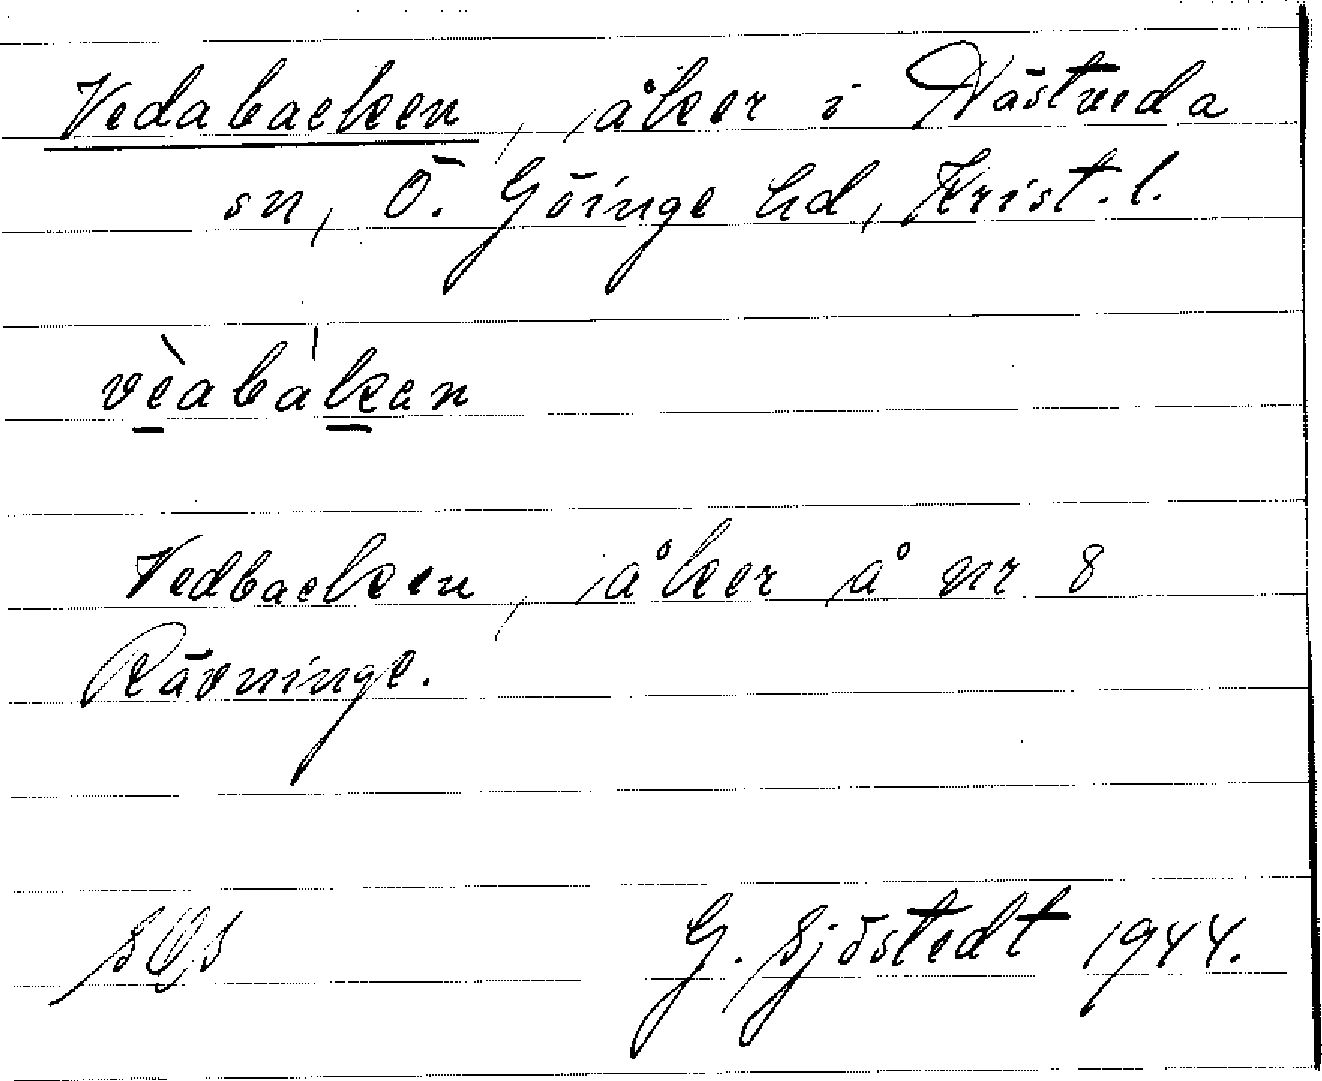 Vedabacken, åker i Nästveda
sn, Ö. Göinge hd, Krist. l.
vèabákan
Vedbacken, åker å nr 8
Rävninge.
G. Sjöstedt 1944.